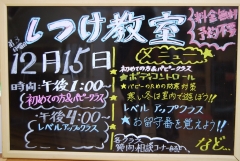 しつけ教室
料金無料
予約不要
12月15日
時間:午後1:00~
(初めての方&パピークラス)
午後4:00~
レベルアップクラス
メニュー
初めての方&パピークラス
★ボディコントロール
★パピーのための防寒対策
寒い冬は室内で遊ぼう!!
レベルアップクラス
★お留守番を覚えよう!!
各クラス
質問・相談コーナーあり
など…